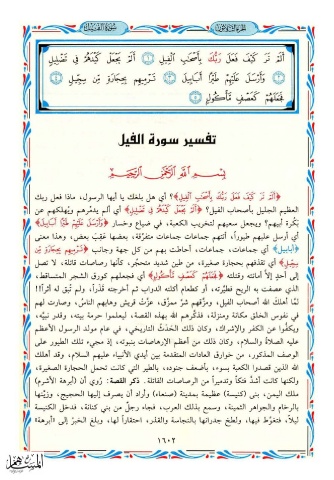 سورة الفيل
الجزء الثلاثون
أَلَمْ تَرَ كَيْفَ فَعَلَ رَبُّكَ بِأَصْحَابِ الْفِيلِ ١ أَلَمْ يَجْعَلْ كَيْدَهُمْ فِي تَضْلِيلٍ
٢ وَأَرْسَلَ عَلَيْهِمْ طَيْرًا أَبَابِيلَ ٣ تَرْمِيهِم بِحِجَارَةٍ مِّن سِجِّيلٍ ٤
فَجَعَلَهُمْ كَعَصْفٍ مَّأْكُولٍ ٥
تفسير سورة الفيل
بسم الله الرحمن الرحيم
﴿أَلَمْ تَرَ كَيْفَ فَعَلَ رَبُّكَ بِأَصْحَابِ الْفِيلِ﴾؟ أي هل بلغك يا أيها الرسول، ماذا فعل ربك
العظيم الجليل بأصحاب الفيل؟ ﴿أَلَمْ يَجْعَلْ كَيْدَهُمْ فِي تَضْلِيلٍ﴾ أي ألم يدمرهم ويهلكهم عن
بكرة أبيهم؟ ويجعل سعيهم لتخريب الكعبة، في ضياع وخسار ﴿وَأَرْسَلَ عَلَيْهِمْ طَيْرًا أَبَابِيلَ﴾
أي أرسل عليهم طيوراً، أتتهم جماعات متفرّقة، بعضها عَقِبَ بعض، وهذا معنى
﴿أبابيل﴾ أي جماعات، جماعات، أحاطت بهم من كل جهة وجانب ﴿تَرْمِيهِم بِحِجَارَةٍ مِّن
سِجِّيلٍ﴾ أي تقذفهم بحجارة صغيرة، من طين شديد متحجّر، كأنها رصاصات قاتلة، لا تصل
إلى أحدٍ إلاّ أماتته وقتلته ﴿فَجَعَلَهُمْ كَعَصْفٍ مَّأْكُولٍ﴾ أي فجعلهم كورق الشجر المتساقط،
الذي عصفت به الريح فطيّرته، أو كطعام أكلته الدواب ثم أخرجته قَذَراً، ولم تُبق له أثراً!!
لمّا أهلك الله أصحاب الفيل، ومزّقهم شرَّ ممزّق، عزَّت قريش وهابهم الناسُ، وصارت لهم
في نفوس الخلق مكانة ومنزلة، فذكّرهم الله بهذه القصة، ليعلموا حرمة بيته، وقدر نبيّه،
ويكفُّوا عن الكفر والإشراك، وكان ذلك الحَدَثُ التاريخي، في عام مولد الرسول الأعظم
عليه الصلاة والسلام، وكان ذلك من أعظم الإرهاصات بنبوته، إذ مجيء تلك الطيور على
الوصف المذكور، من خوارق العادات المتقدمة بين أيدي الأنبياء عليهم السلام، وقد أهلك
الله الذين قصدوا الكعبة بسوء، بأضعف جنوده، بالطير التي كانت تحمل الحجارة الصغيرة،
ولكنها كانت أشدَّ فتكاً وتدميراً من الرصاصات القاتلة. ذكر القصة: رُوي أن (أبرهة الأشرم)
ملك اليمن، بنى (كنيسة) عظيمة بمدينة (صنعاء) وأراد أن يصرف إليها الحجيج، وزيَّنها
بالرخام والجواهر الثمينة، وسمع بذلك العرب، فجاء رجلٌ من بني كنانة، فدخل الكنيسة
ليلاً، فتغوّط فيها، ولطخ جدرانها بالنجاسة والقذر، احتقاراً لها، وبلغ الخبرُ إلى «أبرهة»
١٦٠٢